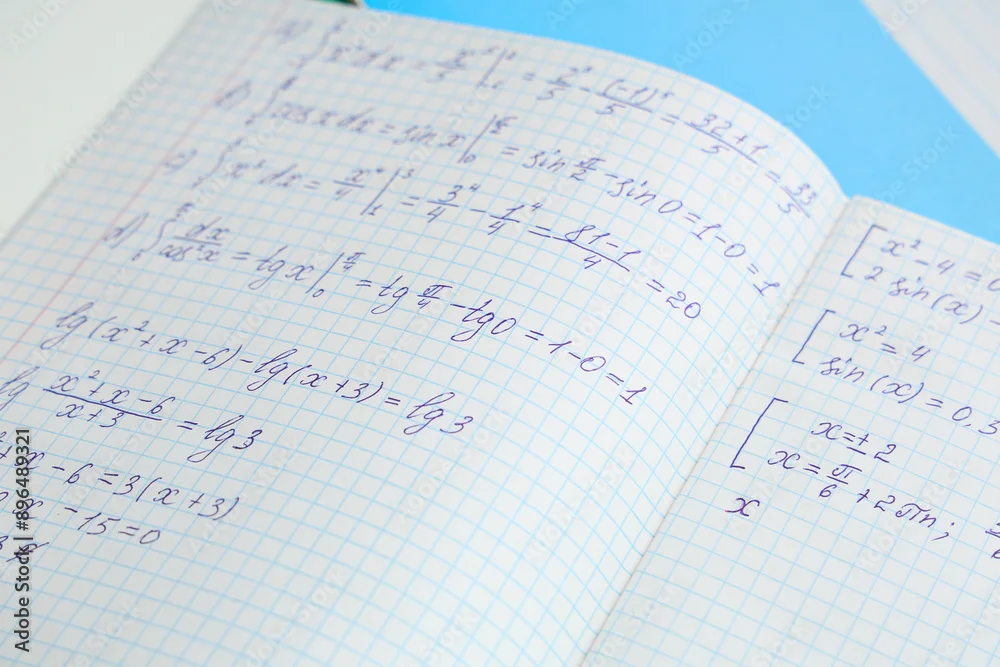 = 2⁵/5 - (-1)⁵/5 = 32+1/5 = 33/5
b) ∫ cos x dx = sin x |₀ = sin π/2 - sin 0 = 1-0 = 1
c) ∫ x³ dx = x⁴/4 |₁³ = 3⁴/4 - 1⁴/4 = 81-1/4 = 20
d) ∫ dx/cos²x = tg x |₀^π/4 = tg π/4 - tg 0 = 1-0 = 1
lg(x²+x-6)-lg(x+3) = lg3
lg x²+x-6/x+3 = lg3
x-6=3(x+3)
x -15=0
[ x²-4=0
2 sin(x)-
[ x²=4
sin(x)=0,5
[ x=±2
x=π/6+2πn;
x
Adobe Stock | #896489321